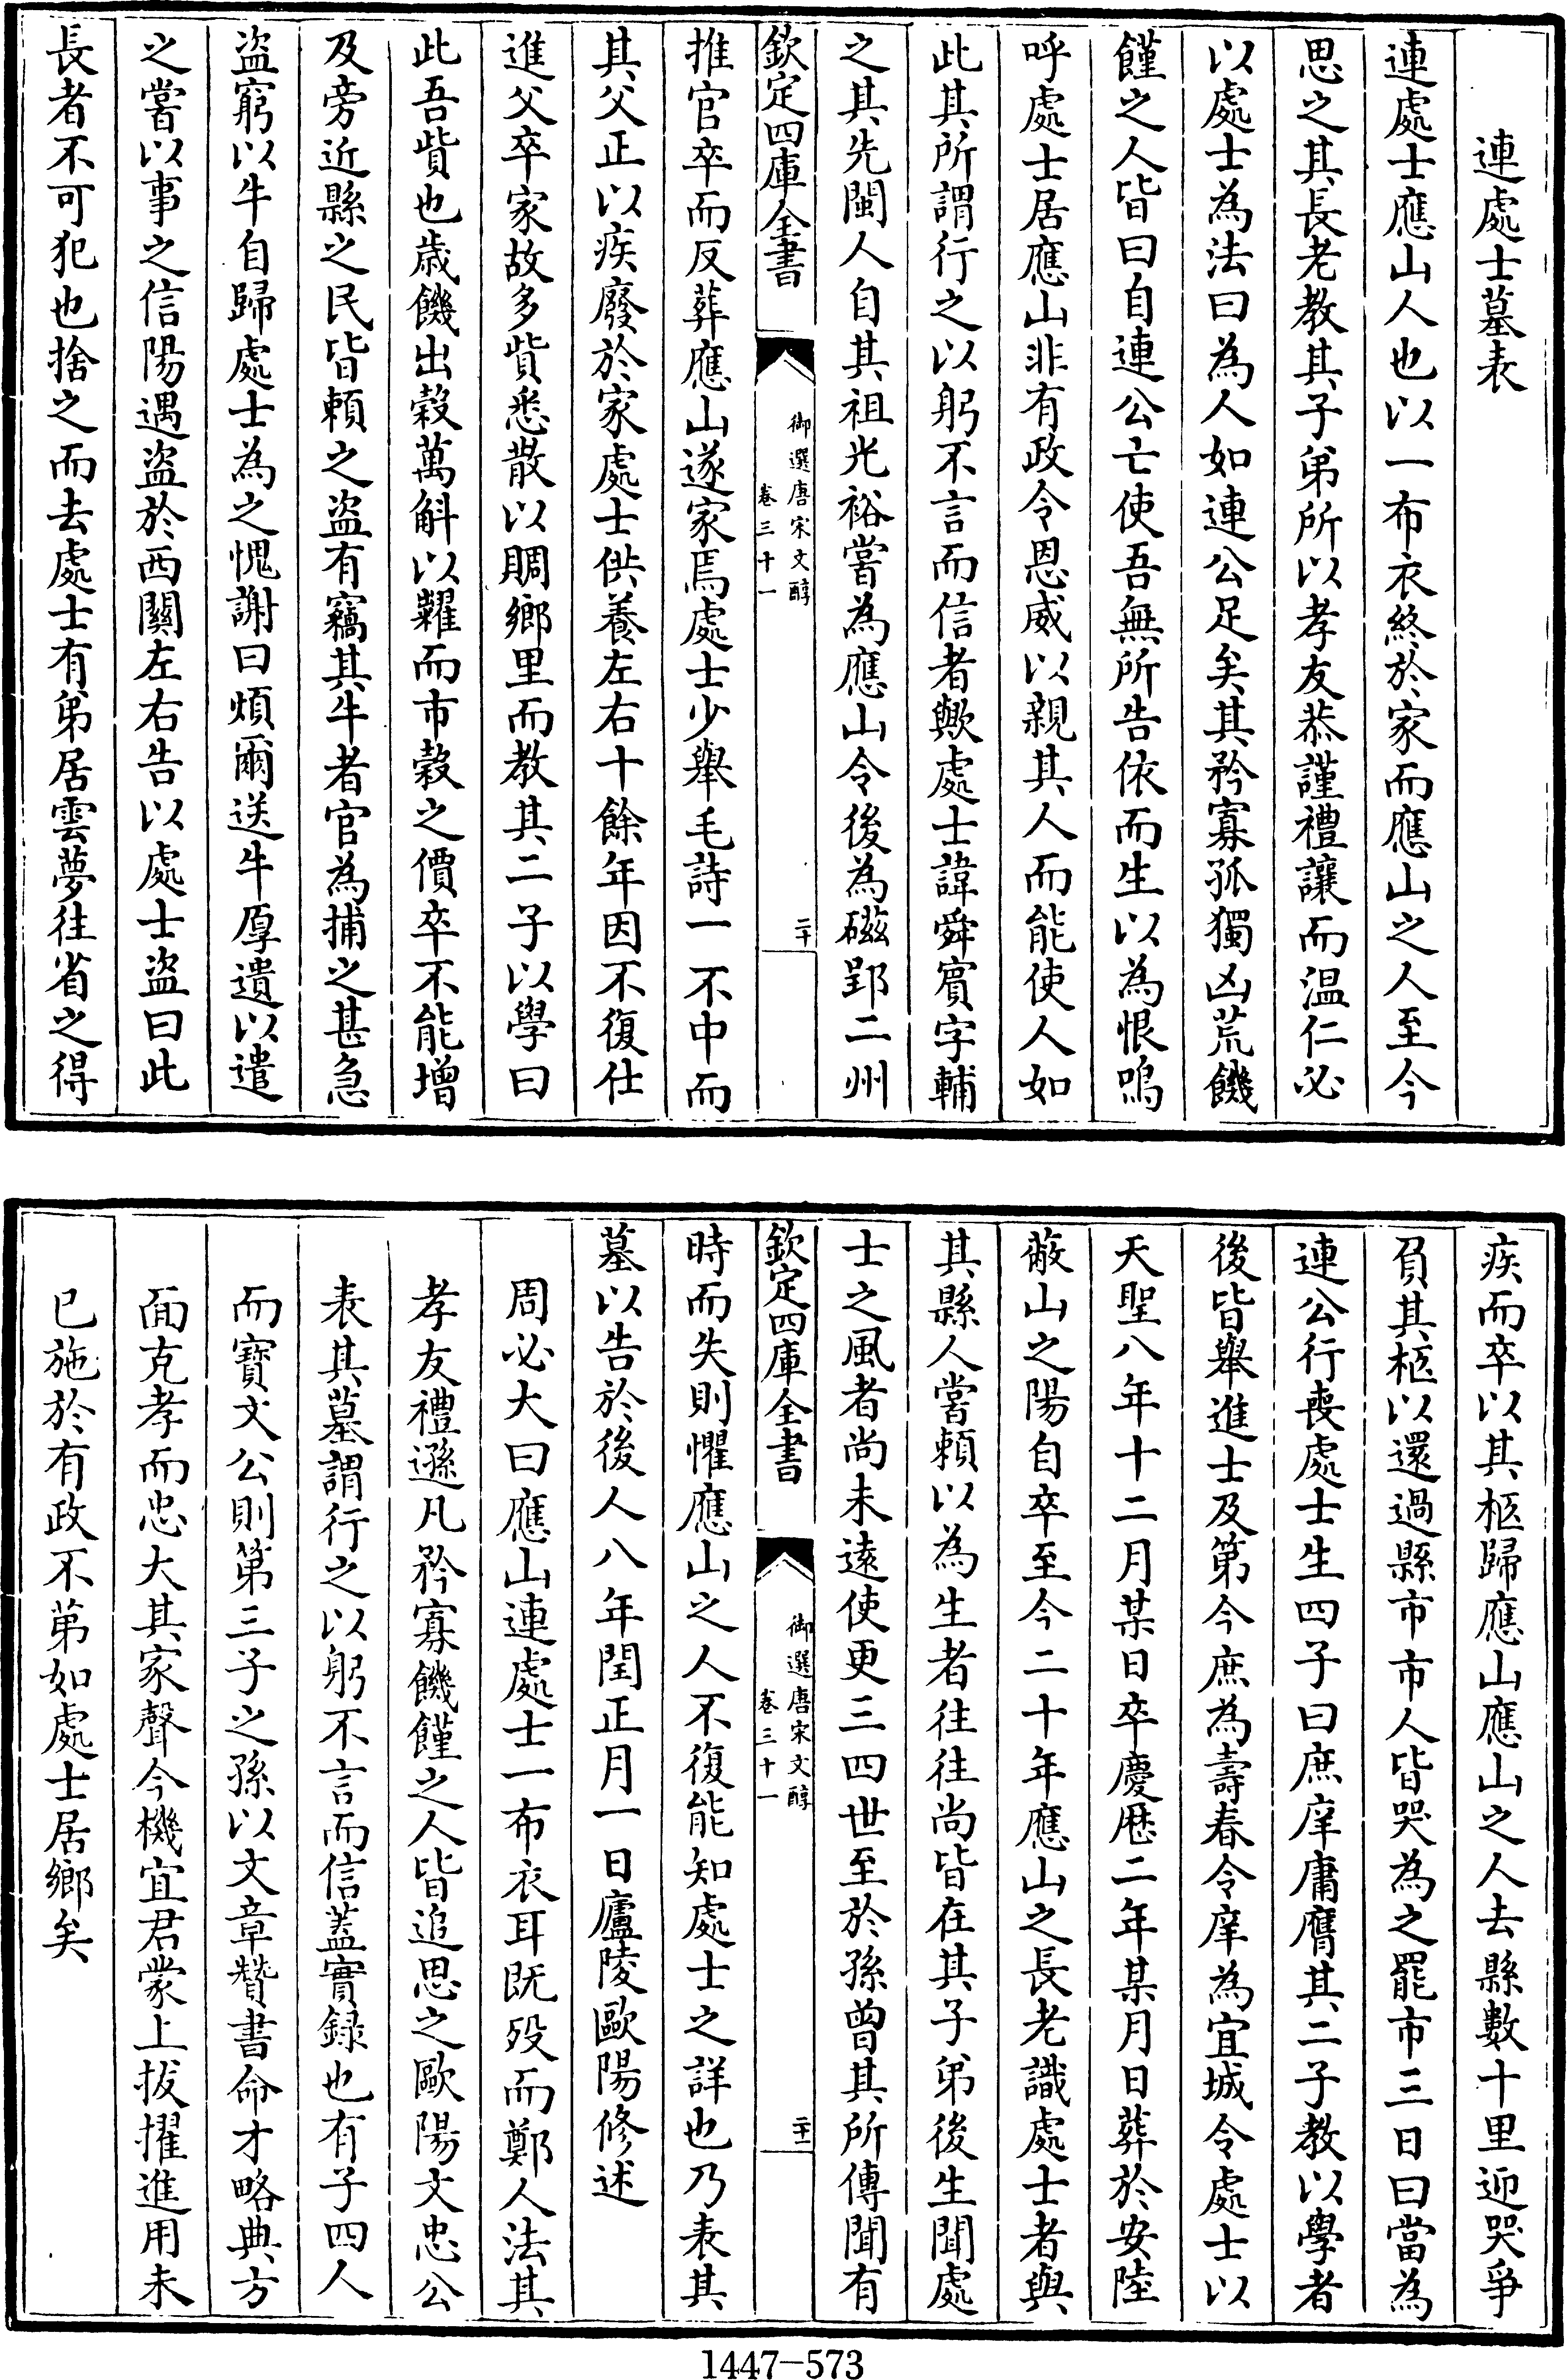 連處士墓表
連處士應山人也以一布衣終於家而應山之人至今
思之其長老教其子弟所以孝友恭謹禮讓而温仁必
以處士為法曰為人如連公足矣其矜寡孤獨凶荒饑
饉之人皆曰自連公亡使吾無所告依而生以為恨嗚
呼處士居應山非有政令恩威以親其人而能使人如
此其所謂行之以躬不言而信者歟處士諱舜賔字輔
之其先閩人自其祖光裕嘗為應山令後為磁郢二州
欽定四庫全書
御選唐宋文醇
卷三十一
二十
推官卒而反葬應山遂家焉處士少舉毛詩一不中而
其父正以疾廢於家處士供養左右十餘年因不復仕
進父卒家故多貲悉散以賙鄉里而教其二子以學曰
此吾貲也歳饑出穀萬斛以糶而市穀之價卒不能增
及旁近縣之民皆頼之盗有竊其牛者官為捕之甚急
盗窮以牛自歸處士為之愧謝曰煩爾送牛厚遺以遣
之嘗以事之信陽遇盗於西關左右告以處士盗曰此
長者不可犯也捨之而去處士有弟居雲夢往省之得
疾而卒以其柩歸應山應山之人去縣數十里迎哭爭
負其柩以還過縣市市人皆哭為之罷市三日曰當為
連公行喪處士生四子曰庶庠庸膺其二子教以學者
後皆舉進士及第今庶為壽春令庠為宜城令處士以
天聖八年十二月某日卒慶歴二年某月日葬於安陸
蔽山之陽自卒至今二十年應山之長老識處士者與
其縣人嘗頼以為生者往往尚皆在其子弟後生聞處
士之風者尚未逺使更三四世至於孫曾其所傳聞有
欽定四庫全書
御選唐宋文醇
卷三十一
二十一
時而失則懼應山之人不復能知處士之詳也乃表其
墓以告於後人八年閏正月一日廬陵歐陽修述
周必大曰應山連處士一布衣耳既歿而鄭人法其
孝友禮遜凡矜寡饑饉之人皆追思之歐陽文忠公
表其墓謂行之以躬不言而信蓋實録也有子四人
而寳文公則第三子之孫以文章贊書命才略典方
面克孝而忠大其家聲今機宜君蒙上拔擢進用未
已施於有政不第如處士居鄉矣
1447-573